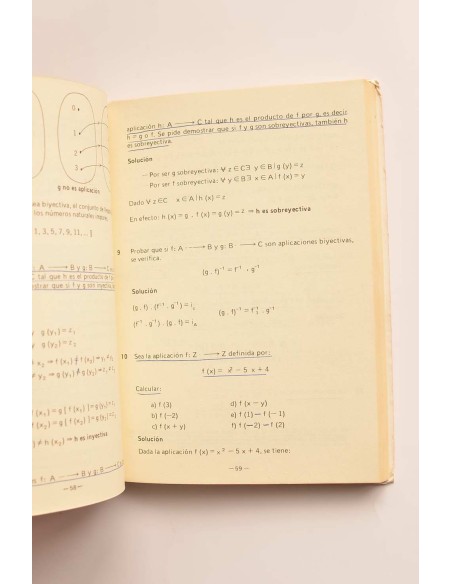 0
1
2
3
g no es aplicación
ea biyectiva, el conjunto de
los números naturales
1, 3, 5, 7, 9, 11, ...]
B y g: B C
y g (y₁) = z₁
y g (y₂) = z₂
≠ y₂ ⇒ g(y₁) ≠ g(y₂) ⇒ z₁ ≠ z₂
f (x₁) = g [ f (x₁) ] = g (y₁) = z₁
f (x₂) = g [ f (x₂) ] = g (y₂) = z₂
≠ h (x₂) ⇒ h es inyectiva
B y g: B C
—58—
aplicación h: A C tal que h es el producto de f por g, es decir
h = g o f. Se pide demostrar que si f y g son sobreyectivas, también h
es sobreyectiva.
Solución
— Por ser g sobreyectiva: ∀ z ∈ C ∃ y ∈ B | g (y) = z
Por ser f sobreyectiva: ∀ y ∈ B ∃ x ∈ A | f (x) = y
Dado ∀ z ∈ C x ∈ A | h (x) = z
En efecto: h (x) = g . f (x) = g (y) = z ⇒ h es sobreyectiva
9 Probar que si f: A B y g: B C son aplicaciones biyectivas,
se verifica:
(g . f)⁻¹ = f⁻¹ . g⁻¹
Solución
(g . f) . (f⁻¹ . g⁻¹) = i
(g . f)⁻¹ = f⁻¹ . g⁻¹
(f⁻¹ . g⁻¹) . (g . f) = i
10 Sea la aplicación f: Z Z definida por:
f (x) = x² − 5 x + 4
Calcular:
a) f (3) d) f (x − y)
b) f (−2) e) f (1) − f (−1)
c) f (x + y) f) f (−2) − f (2)
Solución
Dada la aplicación f (x) = x² − 5 x + 4, se tiene:
—59—